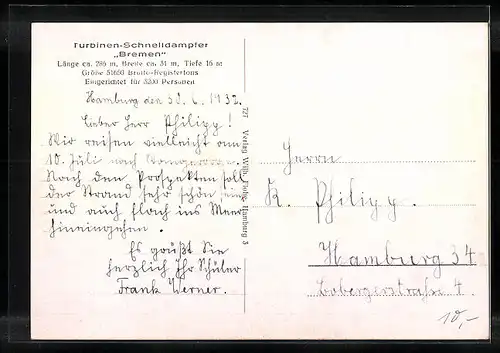 Turbinen-Schnelldampfer
„Bremen“
Länge ca. 286 m, Breite ca. 31 m, Tiefe 16 m
Größe 51650 Brutto-Registertons
Eingerichtet für 3200 Personen
Hamburg den 30. 6. 1932.
Lieber Herr Philipp!
Wir reisen vielleicht am
10. Juli nach
Nach den Prospekten soll
der Strand sehr schön sein
und auch flach ins Meer
hineingehen.
Es grüßt Sie
herzlich Ihr Schüler
Frank Werner.
727 Verlag Wilh. Hamburg 3
Herrn
K. Philipp.
Hamburg 34
Bobergerstraße 4.
10,-